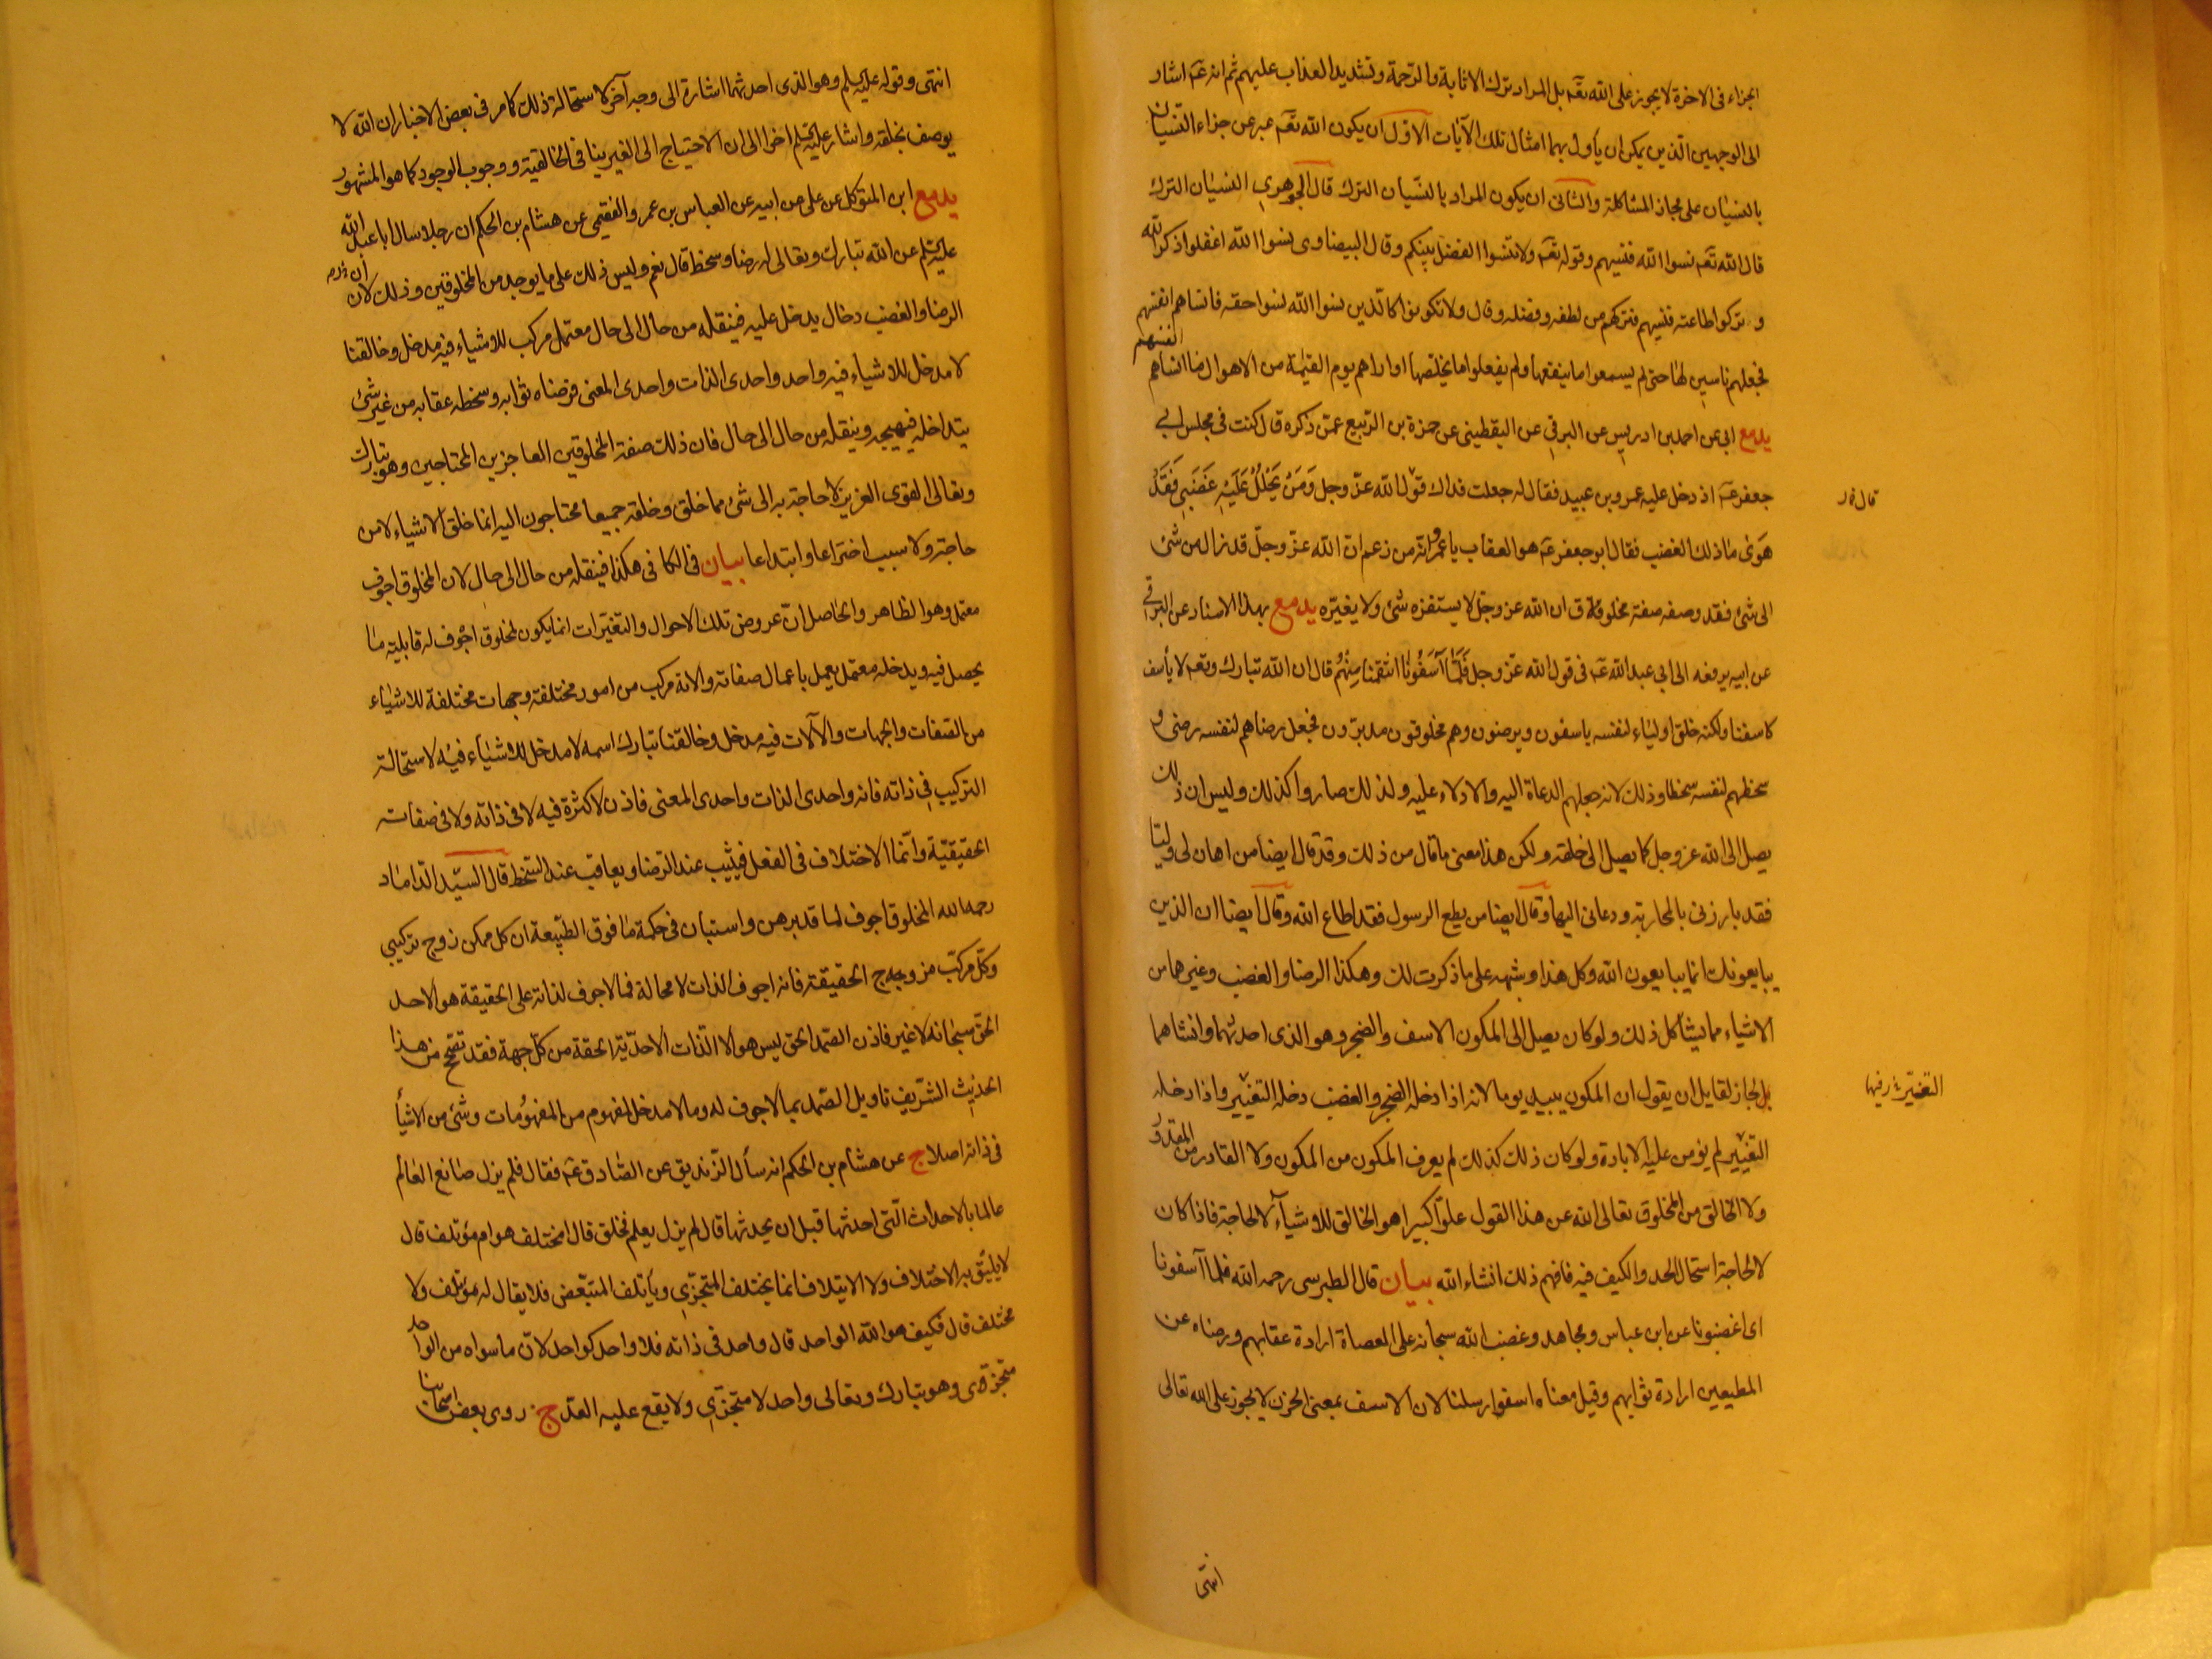 الجزاء فى الاخرة لا يجوز على الله تعه بل المراد ترك الاثابة والرحمة وتشديد العذاب عليهم ثم انه عه اشار
الى الوجهين الذين يمكن ان يأول بهما امثال تلك الآيات الاول ان يكون الله تعه عبر عن جزاء النسيان
بالنسيان على مجاز المشاكلة والثانى ان يكون المراد بالنسيان الترك قال الجوهرى النسيان الترك
قال الله تعه نسوا الله فنسيهم وقوله تعه ولا تنسوا الفضل بينكم وقال البيضاوى نسوا الله اغفلوا ذكر الله
و تركوا طاعته فنسيهم فتركهم من لطفه وفضله وقال ولا تكونوا كالذين نسوا الله نسوا حقه فانساهم انفسهم
فجعلهم ناسين لها حتى لم يسمعوا ما ينفعها ولم يفعلوا ما يخلصها او اراهم يوم القيمة من الاهوال ما انساهم انفسهم
يد مع ابى عن احمد بن ادريس عن البرقى عن اليقطينى عن حمزة بن الربيع عمن ذكره قال كنت فى مجلس ابى
جعفر عه اذ دخل عليه عمرو بن عبيد فقال له جعلت فداك قول الله عز وجل وَمَنْ يَحْلُلْ عَلَيْهِ غَضَبِى فَقَدْ
هَوٰى ما ذلك الغضب فقال ابو جعفر عه هو العقاب يا عمرو انه من زعم ان الله عز وجل قد زال من شئ
الى شئ فقد وصفه صفة مخلوق ان الله عز وجل لا يستفزه شئ ولا يغيره يد مع بهذا الاسناد عن البرقى
عن ابيه يرفعه الى ابى عبد الله عه فى قول الله عز وجل فَلَمَّا آسَفُونَا انْتَقَمْنَا مِنْهُمْ قال ان الله تبارك وتعه لا يأسف
كاسفنا ولكنه خلق اولياء لنفسه ياسفون ويرضون وهم مخلوقون مدبرون فجعل رضاهم لنفسه رضى و
سخطهم لنفسه سخطا وذلك لانه جعلهم الدعاة اليه والادلاء عليه ولذلك صاروا كذلك وليس ان ذلك
يصل الى الله عز وجل كما يصل الى خلقه ولكن هذا معنى ما قال من ذلك وقد قال ايضا من اهان لى وليا
فقد بارزنى بالمحاربة ودعانى اليها وقال ايضا من يطع الرسول فقد اطاع الله وقال ايضا ان الذين
يبايعونك انما يبايعون الله وكل هذا وشبهه على ما ذكرت لك وهكذا الرضا والغضب وغيرهما من
الاشياء مما يشاكل ذلك ولو كان يصل الى المكون الاسف والضجر وهو الذى احدثهما وانشاهما
بل لجاز لقايل ان يقول ان المكون يبيد يوما لانه اذا دخله الضجر والغضب دخله التغيير واذا دخله
التغيير لم يؤمن عليه الابادة ولو كان ذلك كذلك لم يعرف المكون من المكون ولا القادر من المقدور
ولا الخالق من المخلوق تعالى الله عن هذا القول علوا كبيرا هو الخالق للاشيآء لا لحاجة فاذا كان
لا لحاجة استحال الحد والكيف فيه فافهم ذلك انشاء الله بيان قال الطبرسى رحمه الله فلما آسفونا
اى اغضبونا عن ابن عباس ومجاهد وغضب الله سبحانه على العصاة ارادة عقابهم ورضاه عن
المطيعين ارادة ثوابهم وقيل معناه اسفوا رسلنا لان الاسف بمعنى الحزن لا يجوز على الله تعالى
انتهى
انتهى وقوله عليه السلم وهو الذى احدثهما اشارة الى وجه آخر لاستحالة ذلك كما مر فى بعض الاخبار ان الله لا
يوصف بخلقه واشار عليه السلم اخرا الى ان الاحتياج الى الغير ينافى الخالقية ووجوب الوجود كما هو المشهور
يد مع ابن المتوكل عن على عن ابيه عن العباس بن عمرو الفقيمى عن هشام بن الحكم ان رجلا سال ابا عبد الله
عليه السلم عن الله تبارك وتعالى له رضا وسخط قال نعم وليس ذلك على ما يوجد من المخلوقين وذلك لان
الرضا والغضب دخال يدخل عليه فينقله من حال الى حال معتمل مركب للاشياء فيه مدخل وخالقنا
لا مدخل للاشياء فيه واحد واحدى الذات واحدى المعنى فرضاه ثوابه وسخطه عقابه من غير شئ
يتداخله فيهيجه وينقله من حال الى حال فان ذلك صفة المخلوقين العاجزين المحتاجين وهو تبارك
وتعالى القوى العزيز لا حاجة به الى شئ مما خلق وخلقه جميعا محتاجون اليه انما خلق الاشياء لا من
حاجة ولا سبب اختراعا وابتداعا بيان فى الكافى هكذا فينقله من حال الى حال لان المخلوق اجوف
معتمل وهو الظاهر والحاصل ان عروض تلك الاحوال والتغيرات انما يكون لمخلوق اجوف له قابلية ما
يحصل فيه ويدخله معتمل يعمل باعمال صفاته والاته مركب من امور مختلفة وجهات مختلفة للاشياء
من الصفات والجهات والآلات فيه مدخل وخالقنا تبارك اسمه لا مدخل للاشياء فيه لاستحالة
التركيب فى ذاته فانه واحدى الذات واحدى المعنى فاذن لا كثرة فيه لا فى ذاته ولا فى صفاته
الحقيقية وانما الاختلاف فى الفعل فيثيب عند الرضا ويعاقب عند السخط قال السيد الداماد
رحمه الله المخلوق اجوف لما قد برهن واستبان فى حكمة ما فوق الطبيعة ان كل ممكن زوج تركيبى
وكل مركب مزوج الحقيقة فانه اجوف الذات لا محالة فما لا جوف لذاته على الحقيقة هو الاحد
الحق سبحانه لا غير فاذن الصمد الحق ليس هو الا الذات الاحدية الحقة من كل جهة فقد تصحح من هذا
الحديث الشريف تاويل الصمد بما لا جوف له وما لا مدخل لمفهوم من المفهومات وشئ من الاشيا
فى ذاته اصلا ج عن هشام بن الحكم انه سأل الزنديق عن الصادق عه فقال فلم يزل صانع العالم
عالما بالاحداث التى احدثها قبل ان يحدثها قال لم يزل يعلم فخلق قال امختلف هو ام مؤتلف قال
لا يليق به الاختلاف ولا الايتلاف انما يختلف المتجزى ويأتلف المتبعض فلا يقال له مؤتلف ولا
مختلف قال فكيف هو الله الواحد قال واحد فى ذاته فلا واحد كواحد لان ما سواه من الواحد
متجزى وهو تبارك وتعالى واحد لا متجزى ولا يقع عليه العد ج روى بعض اصحابنا